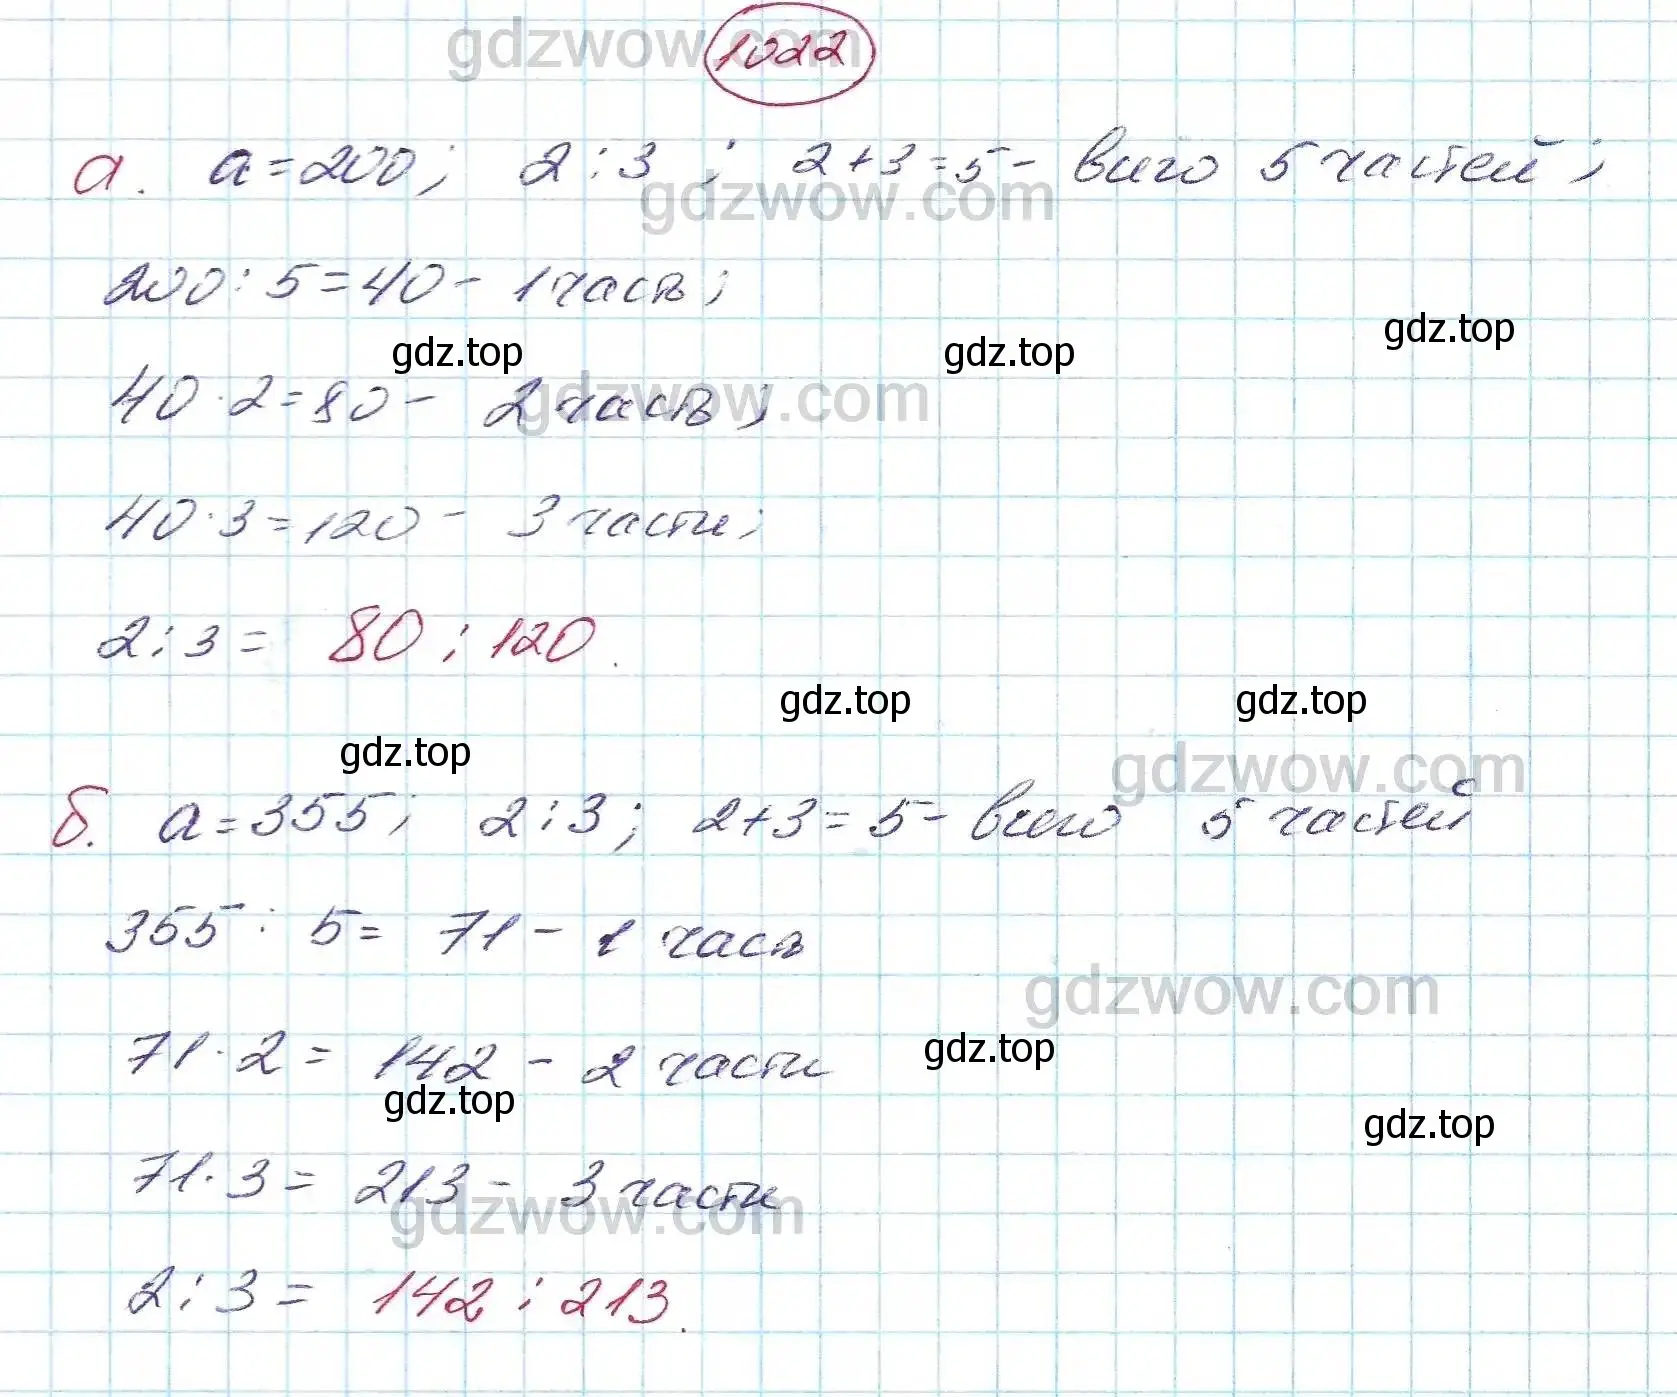 gdzwow.com
1022
а. a=200; 2:3; 2+3=5 - всего 5 частей;
gdzwow.com
200:5=40 - 1 часть;
gdz.top gdz.top gdz.top
40·2=80 - 2 часть;
gdzwow.com
40·3=120 - 3 части;
2:3= 80:120.
gdz.top gdz.top
gdz.top gdzwow.com
б. a=355; 2:3; 2+3=5 - всего 5 частей
355:5=71 - 1 часть
gdzwow.com
71·2=142 - 2 части
gdz.top
gdz.top gdz.top
71·3=213 - 3 части
gdzwow.com
2:3= 142:213.